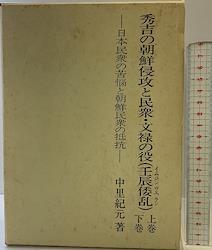 秀吉の朝鮮侵攻と民衆・文禄の役(壬辰倭乱)
イムジンウェラン
上巻
下巻
―日本民衆の苦悩と朝鮮民衆の抵抗―
中里紀元 著